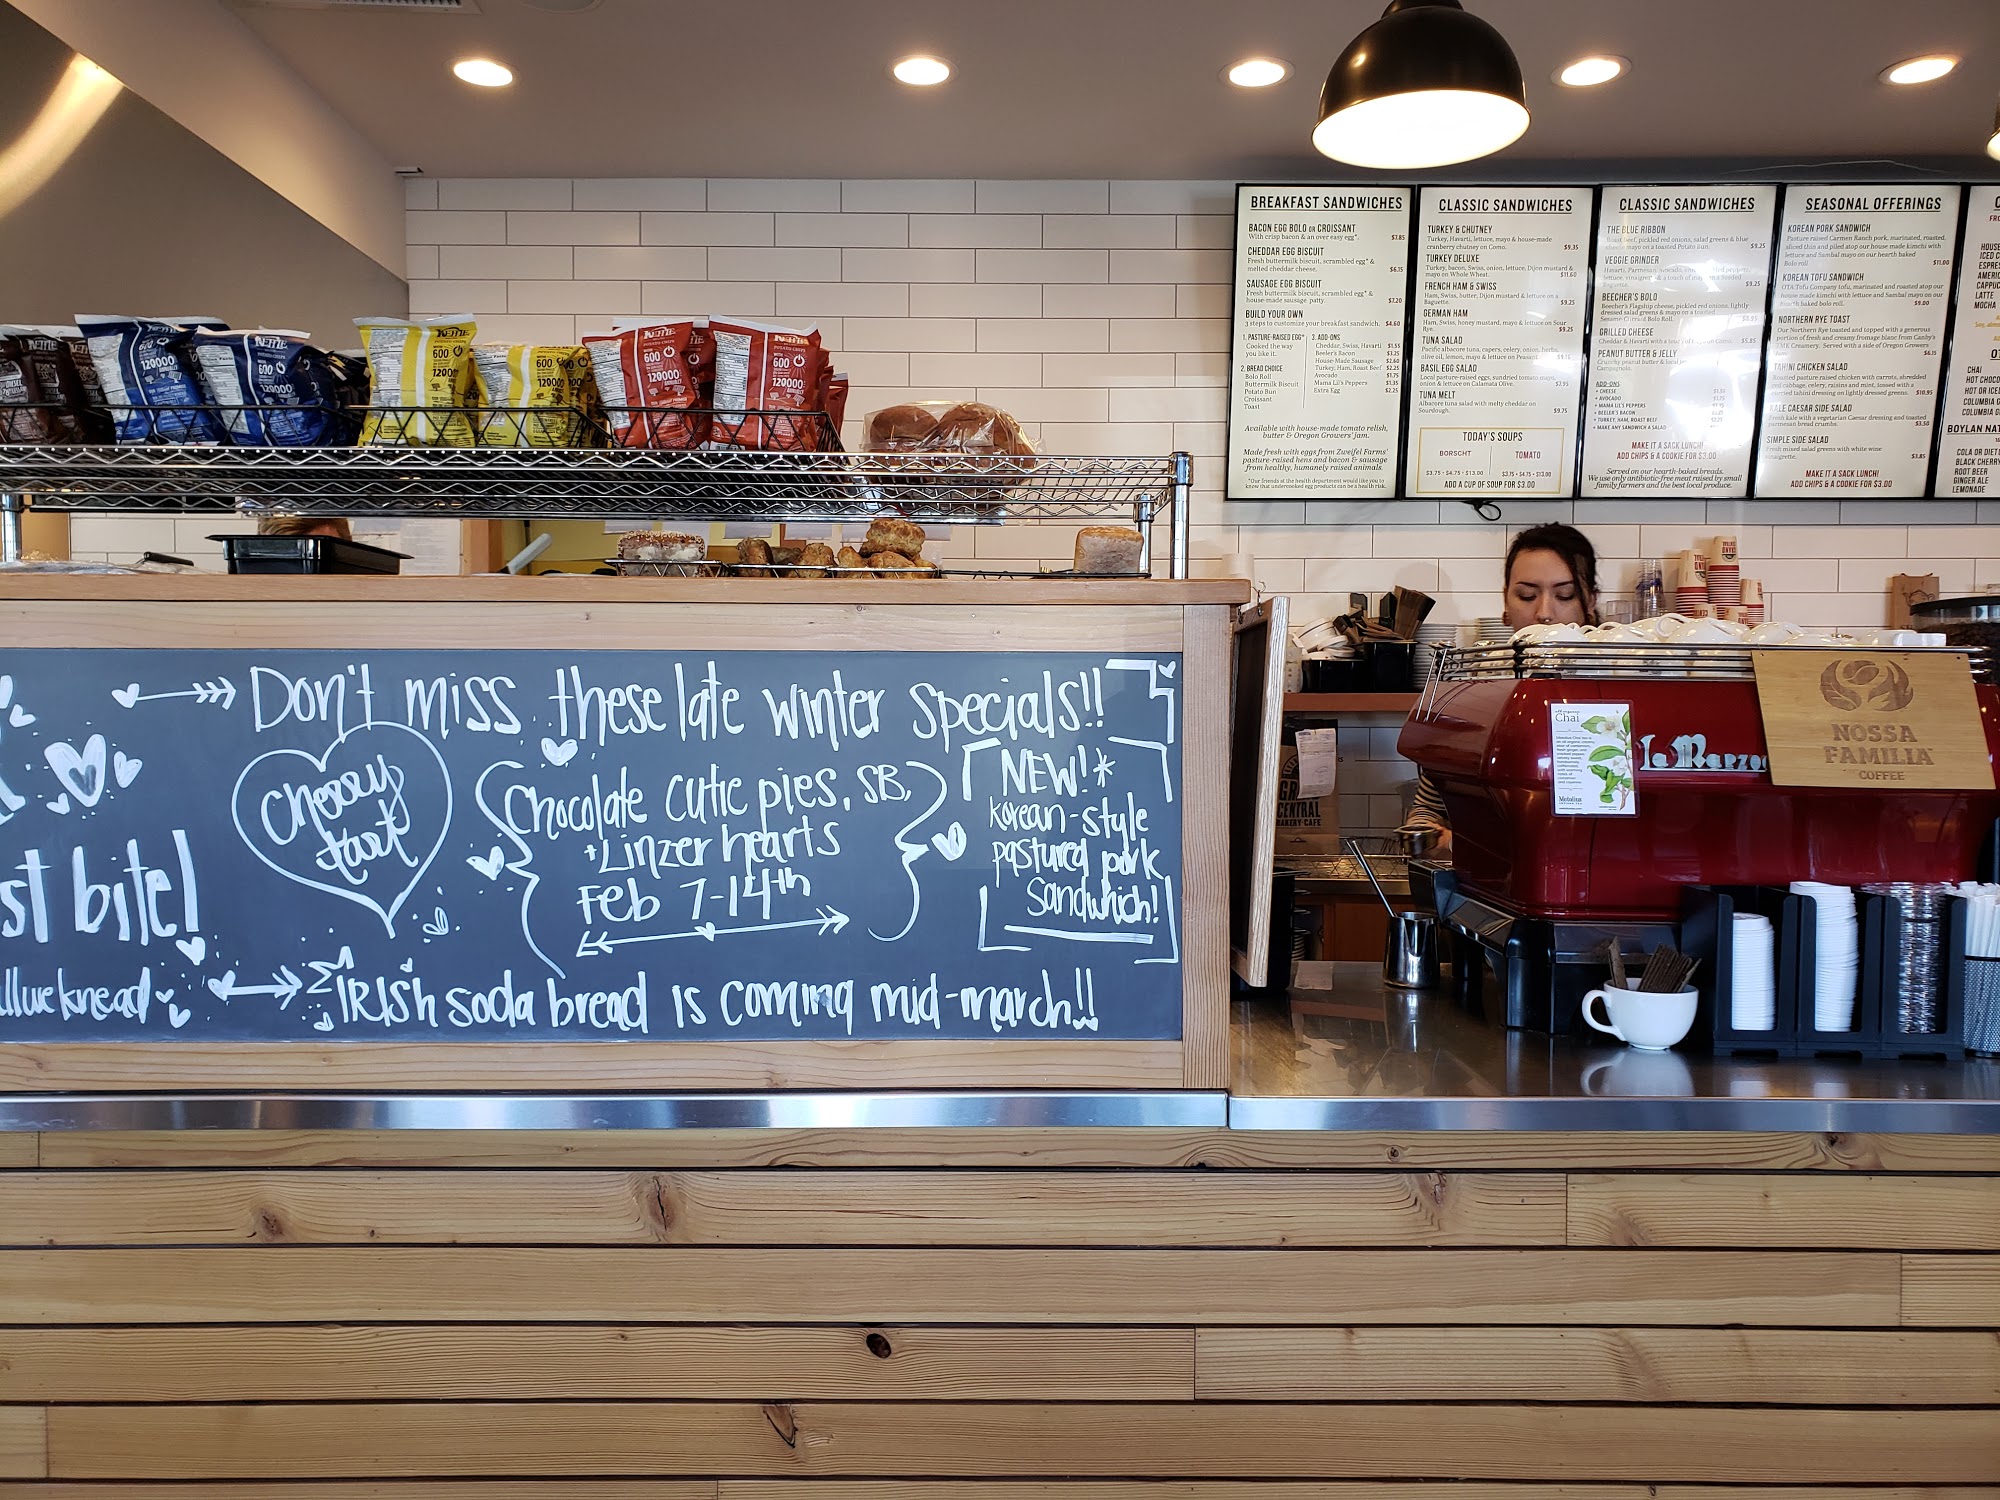 BREAKFAST SANDWICHES
BACON EGG BOLO OR CROISSANT
With crisp bacon & an over easy egg*. $7.85
CHEDDAR EGG BISCUIT
Fresh buttermilk biscuit, scrambled egg* &
melted cheddar cheese. $6.15
SAUSAGE EGG BISCUIT
Fresh buttermilk biscuit, scrambled egg* &
house-made sausage patty. $7.20
BUILD YOUR OWN
3 steps to customize your breakfast sandwich. $4.60
1. PASTURE-RAISED EGG*
Cooked the way
you like it.
2. BREAD CHOICE
Bolo Roll
Buttermilk Biscuit
Potato Bun
Croissant
Toast
3. ADD-ONS
Cheddar, Swiss, Havarti $1.55
Beeler's Bacon $3.25
House Made Sausage $2.60
Turkey, Ham, Roast Beef $2.25
Avocado $1.75
Mama Lil's Peppers $1.35
Extra Egg $2.25
Available with house-made tomato relish,
butter & Oregon Growers' jam.
Made fresh with eggs from Zweifel Farms'
pasture-raised hens and bacon & sausage
from healthy, humanely raised animals.
*Our friends at the health department would like you to
know that undercooked egg products can be a health risk.
CLASSIC SANDWICHES
TURKEY & CHUTNEY
Turkey, Havarti, lettuce, mayo & house-made
cranberry chutney on Como. $9.35
TURKEY DELUXE
Turkey, bacon, Swiss, onion, lettuce, Dijon mustard &
mayo on Whole Wheat. $11.60
FRENCH HAM & SWISS
Ham, Swiss, butter, Dijon mustard & lettuce on a
Baguette. $9.25
GERMAN HAM
Ham, Swiss, honey mustard, mayo & lettuce on Sour
Rye. $9.25
TUNA SALAD
Pacific albacore tuna, capers, celery, onion, herbs,
olive oil, lemon, mayo & lettuce on Peasant.
BASIL EGG SALAD
Local pasture-raised eggs, sundried tomato mayo,
onion & lettuce on Calamata Olive. $7.95
TUNA MELT
Albacore tuna salad with melty cheddar on
Sourdough. $9.75
TODAY'S SOUPS
BORSCHT TOMATO
$3.75 • $4.75 • $13.00 $3.75 • $4.75 • $13.00
ADD A CUP OF SOUP FOR $3.00
CLASSIC SANDWICHES
THE BLUE RIBBON
Roast beef, pickled red onions, salad greens & blue
cheese mayo on a toasted Potato Bun. $9.25
VEGGIE GRINDER
Havarti, Parmesan, avocado,
lettuce, vinaigrette & a touch of mayo on a Seeded
Baguette. $9.25
BEECHER'S BOLO
Beecher's Flagship cheese, pickled red onions, lightly
dressed salad greens & mayo on a toasted
Sesame Bolo Roll. $8.95
GRILLED CHEESE
Cheddar & Havarti with Como. $5.85
PEANUT BUTTER & JELLY
Crunchy peanut butter & local
Campagnolo.
ADD-ONS
+ CHEESE
+ AVOCADO
+ MAMA LIL'S PEPPERS
+ BEELER'S BACON
+ TURKEY, HAM, ROAST BEEF
+ MAKE ANY SANDWICH A SALAD
MAKE IT A SACK LUNCH!
ADD CHIPS & A COOKIE FOR $3.00
Served on our hearth-baked breads.
We use only antibiotic-free meat raised by small
family farmers and the best local produce.
SEASONAL OFFERINGS
KOREAN PORK SANDWICH
Pasture raised Carmen Ranch pork, marinated, roasted,
sliced thin and piled atop our house made kimchi with
lettuce and Sambal mayo on our hearth baked
Bolo roll $11.00
KOREAN TOFU SANDWICH
OTA Tofu Company tofu, marinated and roasted atop our
house made kimchi with lettuce and Sambal mayo on our
baked bolo roll. $9.00
NORTHERN RYE TOAST
Our Northern Rye toasted and topped with a generous
portion of fresh and creamy fromage blanc from Canby's
TMK Creamery. Served with a side of Oregon Growers
$6.15
TAHINI CHICKEN SALAD
Roasted pasture raised chicken with carrots, shredded
red cabbage, celery, raisins and mint, tossed with a
curried tahini dressing on lightly dressed greens. $10.95
KALE CAESAR SIDE SALAD
Fresh kale with a vegetarian Caesar dressing and toasted
parmesan bread crumbs. $3.50
SIMPLE SIDE SALAD
Fresh mixed salad greens with white wine
vinaigrette. $3.85
MAKE IT A SACK LUNCH!
ADD CHIPS & A COOKIE FOR $3.00
HOUSE
ICED C
ESPRES
AMERIC
CAPPUC
LATTE
MOCHA
CHAI
HOT CHOCO
HOT OR ICE
COLUMBIA G
COLUMBIA G
BOYLAN NAT
COLA OR DIET
BLACK CHERRY
ROOT BEER
GINGER ALE
LEMONADE
KETTLE
POTATO CHIPS
600
120000
Don't miss these late winter specials!!
Cheesy
toast
Chocolate cutie pies, SB,
+ Linzer hearts
Feb 7-14th
NEW!*
Korean-style
pastured pork
Sandwhich!
st bite!
llue knead
IRISH soda bread is coming mid-march!!
Chai
Metolius
La Marzo
NOSSA
FAMILIA
COFFEE
GR
CENTRAL
BAKERY CAFE